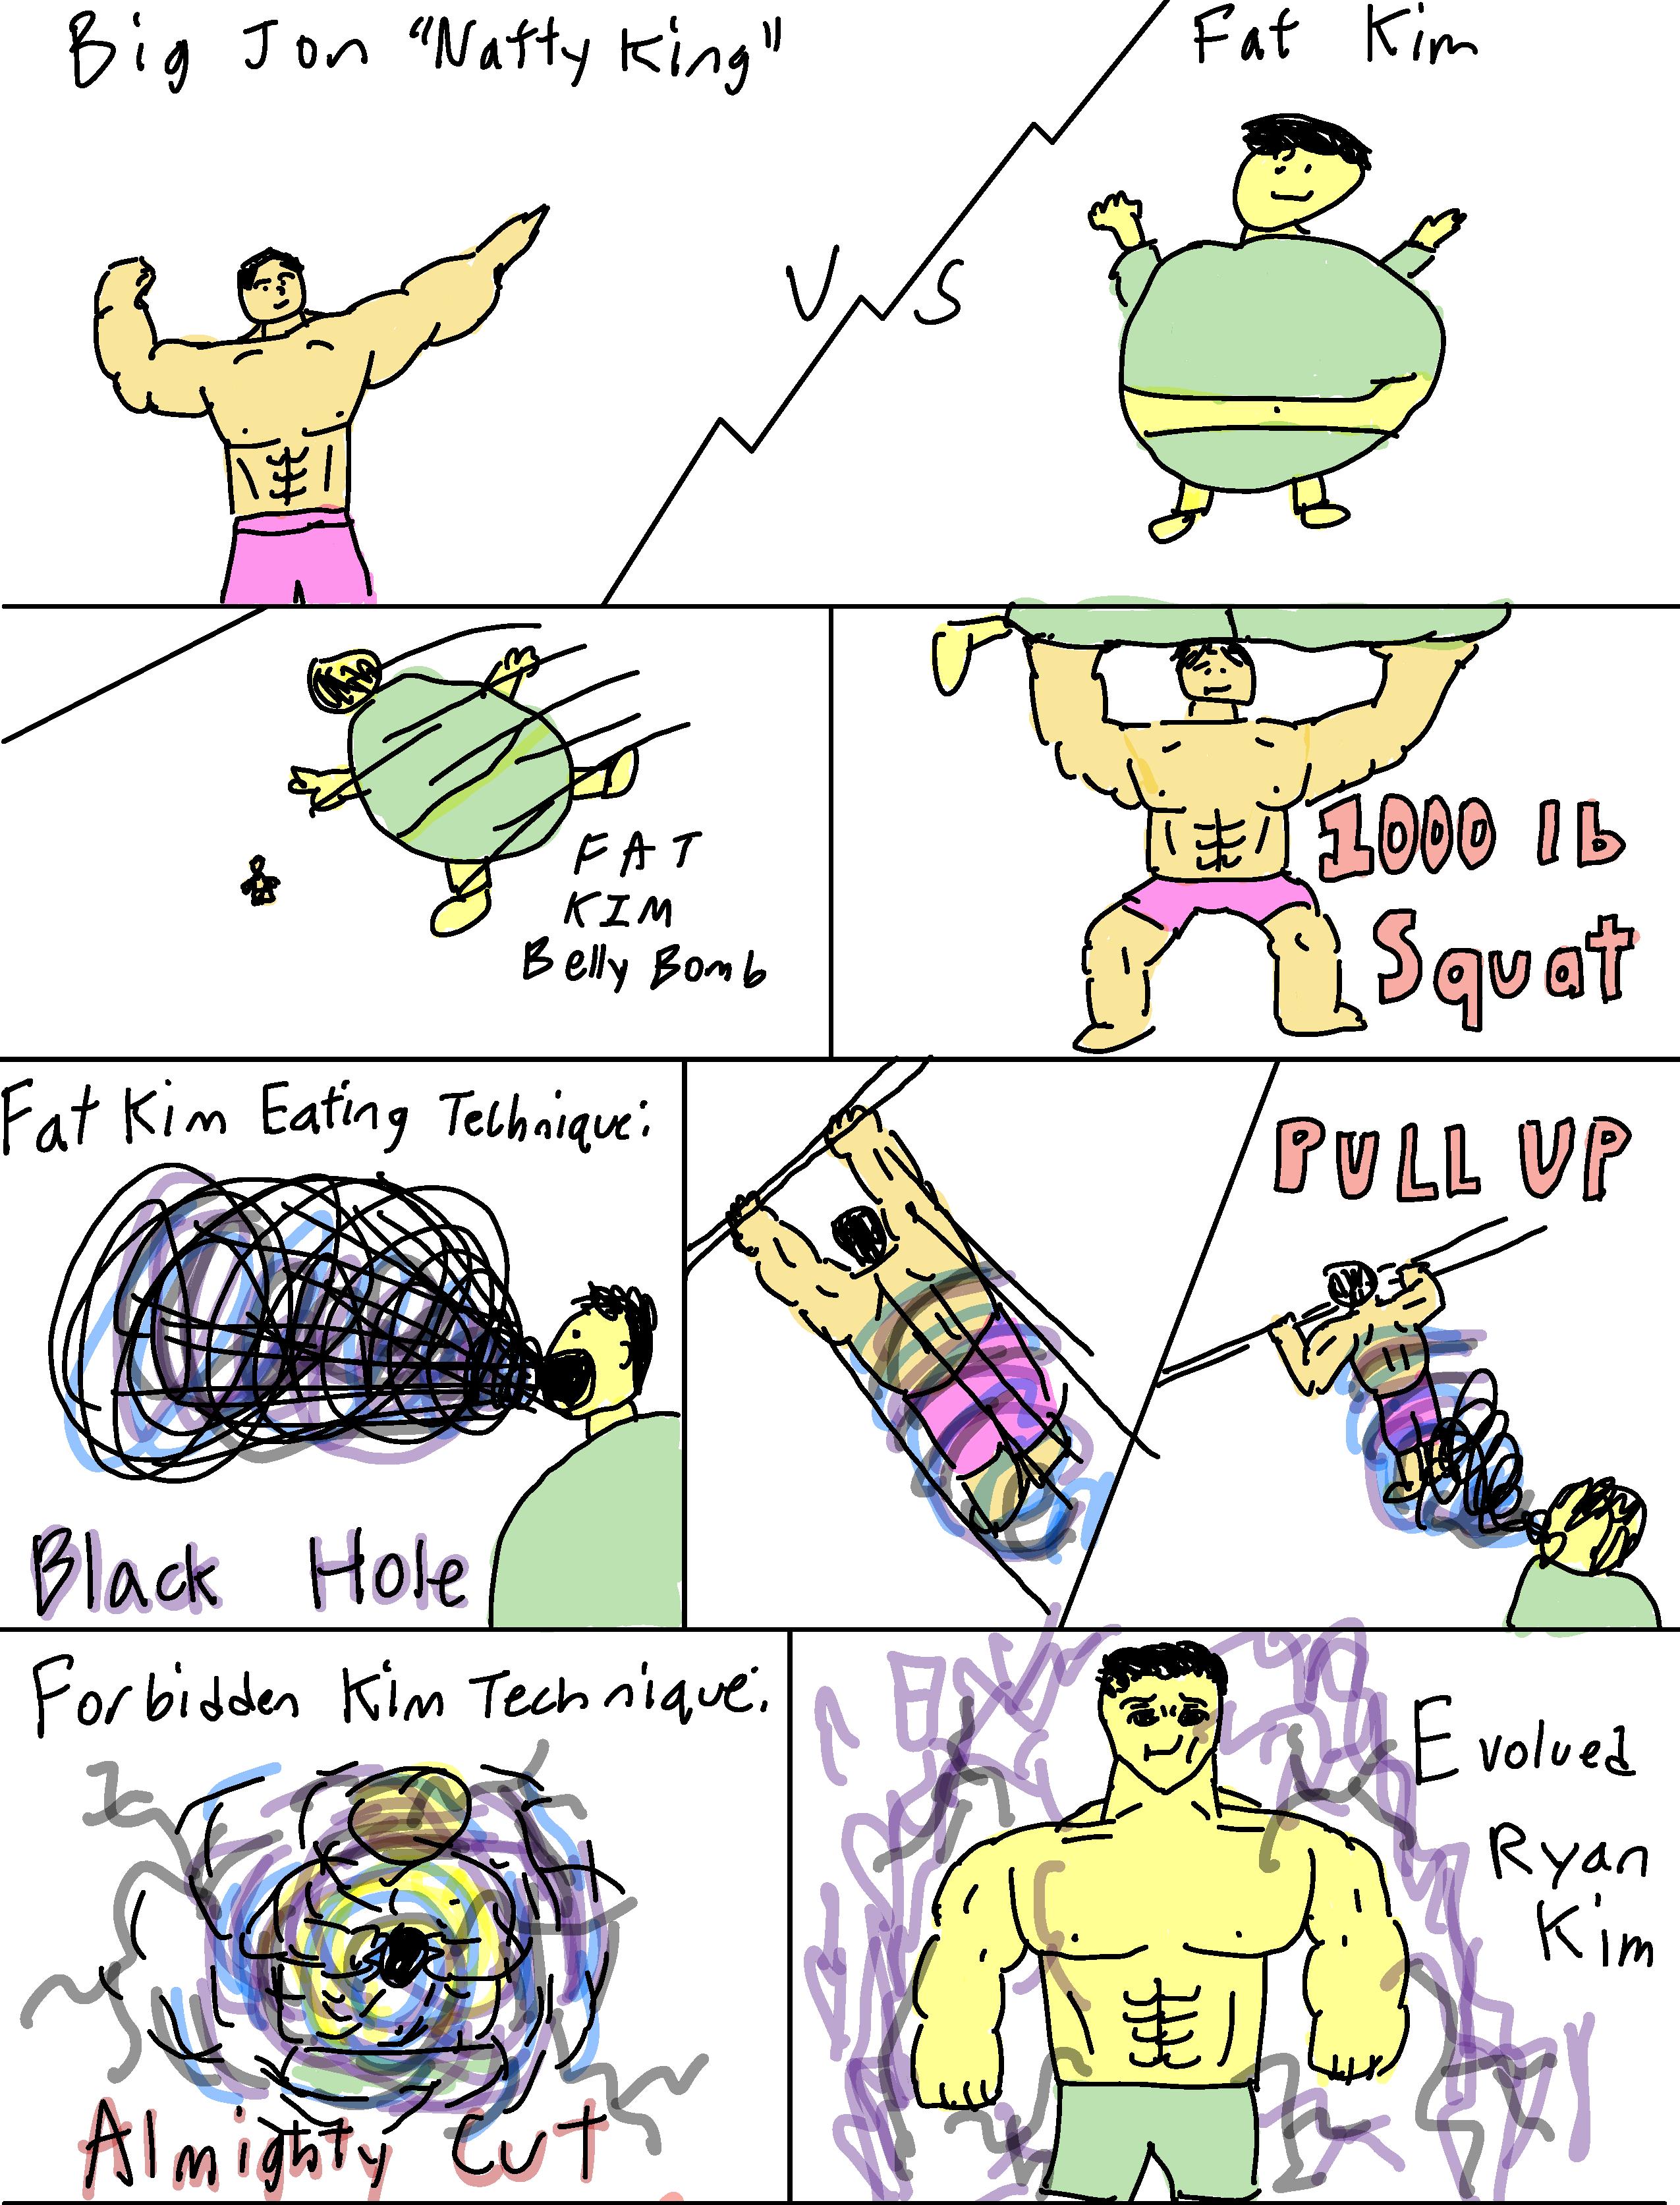 Big Jon "Natty King"
Fat Kim
VS
FAT
KIM
Belly Bomb
1000 lb
Squat
Fat Kim Eating Technique:
Black Hole
PULL UP
Forbidden Kim Technique:
Almighty Cut
Evolved
Ryan
Kim